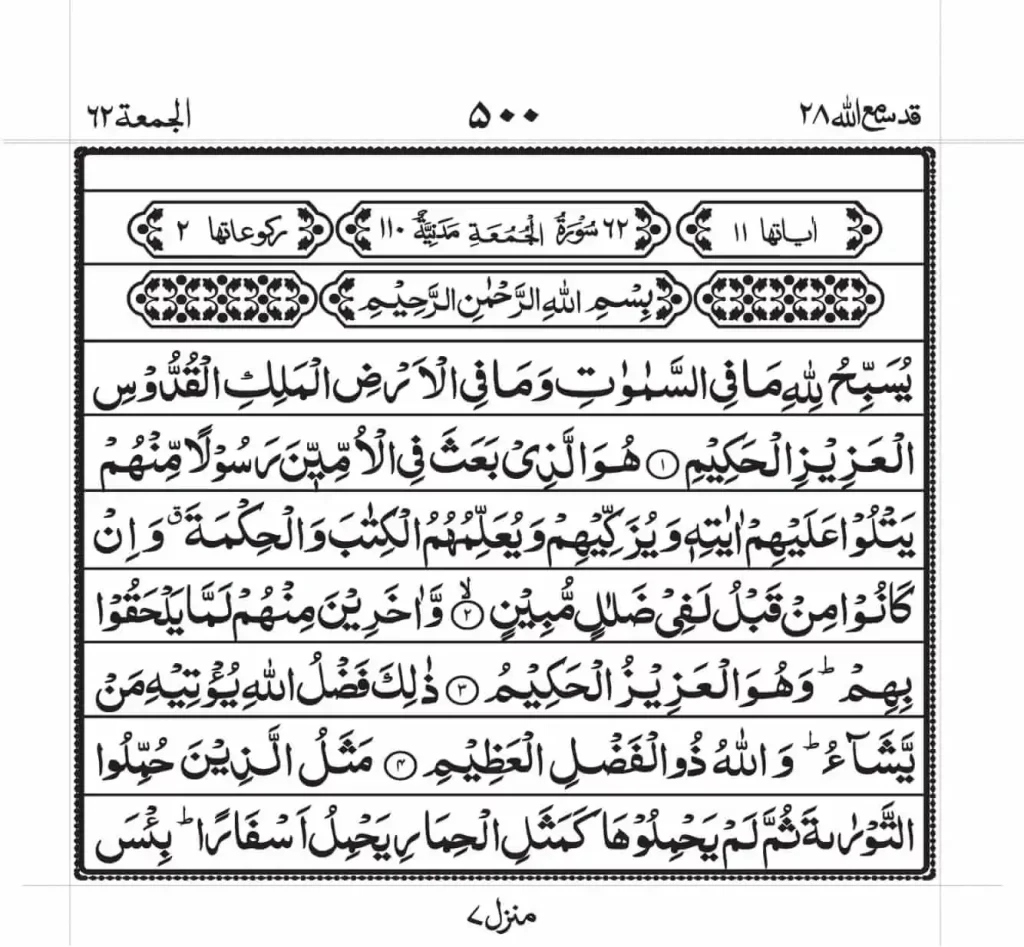 قد سمع الله ٢٨ ۵۰۰ الجمعة ٦٢
اياتها ١١ ٦٢ سُوْرَةُ الْجُمُعَةِ مَدَنِيَّةٌ ١١٠ ركوعاتها ٢
بِسْمِ اللهِ الرَّحْمٰنِ الرَّحِيْمِ
يُسَبِّحُ لِلّٰهِ مَا فِى السَّمٰوٰتِ وَمَا فِى الْاَرْضِ الْمَلِكِ الْقُدُّوْسِ
الْعَزِيْزِ الْحَكِيْمِ ۝١ هُوَ الَّذِىْ بَعَثَ فِى الْاُمِّيّٖنَ رَسُوْلًا مِّنْهُمْ
يَتْلُوْا عَلَيْهِمْ اٰيٰتِهٖ وَيُزَكِّيْهِمْ وَيُعَلِّمُهُمُ الْكِتٰبَ وَالْحِكْمَةَ ۗ وَاِنْ
كَانُوْا مِنْ قَبْلُ لَفِىْ ضَلٰلٍ مُّبِيْنٍ ۝٢ۙ وَّاٰخَرِيْنَ مِنْهُمْ لَمَّا يَلْحَقُوْا
بِهِمْ ؕ وَهُوَ الْعَزِيْزُ الْحَكِيْمُ ۝٣ ذٰلِكَ فَضْلُ اللهِ يُؤْتِيْهِ مَنْ
يَّشَآءُ ؕ وَاللهُ ذُو الْفَضْلِ الْعَظِيْمِ ۝۴ مَثَلُ الَّذِيْنَ حُمِّلُوا
التَّوْرٰىةَ ثُمَّ لَمْ يَحْمِلُوْهَا كَمَثَلِ الْحِمَارِ يَحْمِلُ اَسْفَارًا ؕ بِئْسَ
منزل ٧